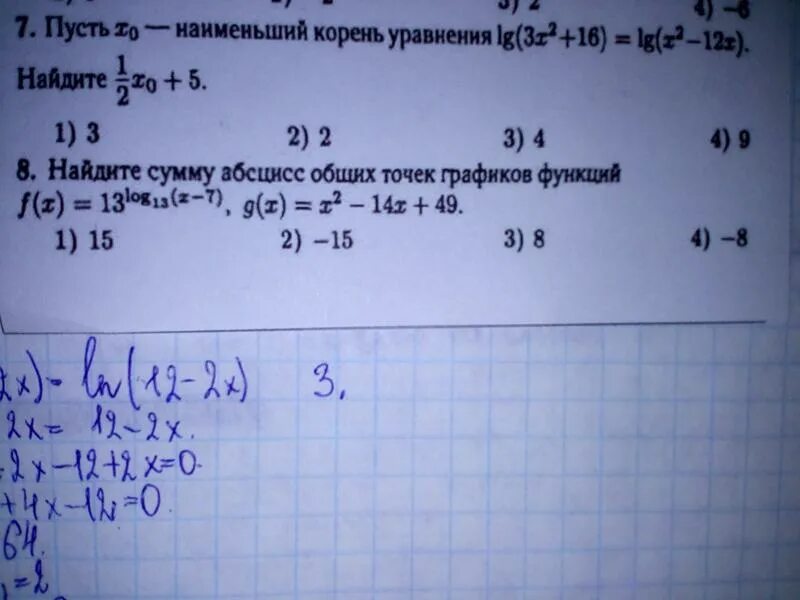 3) 2 4) −6
7. Пусть x₀ — наименьший корень уравнения lg(3x²+16) = lg(x²−12x).
Найдите 1/2 x₀ + 5.
1) 3 2) 2 3) 4 4) 9
8. Найдите сумму абсцисс общих точек графиков функций
f(x) = 13^(log₁₃(x−7)), g(x) = x² − 14x + 49.
1) 15 2) −15 3) 8 4) −8
2x)= ln(12−2x) 3.
2x= 12−2x.
−2x−12+2x=0.
+4x−12=0.
64.
=2